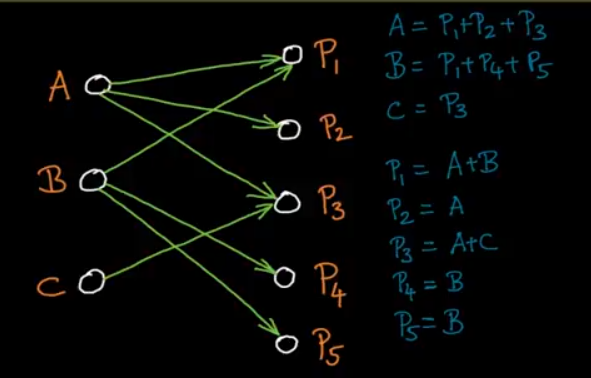 A
B
C
P₁
P₂
P₃
P₄
P₅
A = P₁+P₂+P₃
B = P₁+P₄+P₅
C = P₃
P₁ = A+B
P₂ = A
P₃ = A+C
P₄ = B
P₅ = B